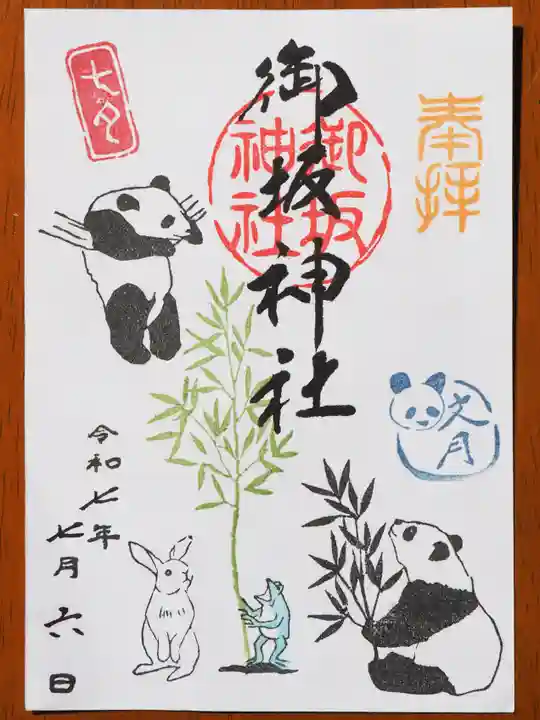 奉拝
文月
御坂神社
御坂
神社
七夕
令和七年
七月六日